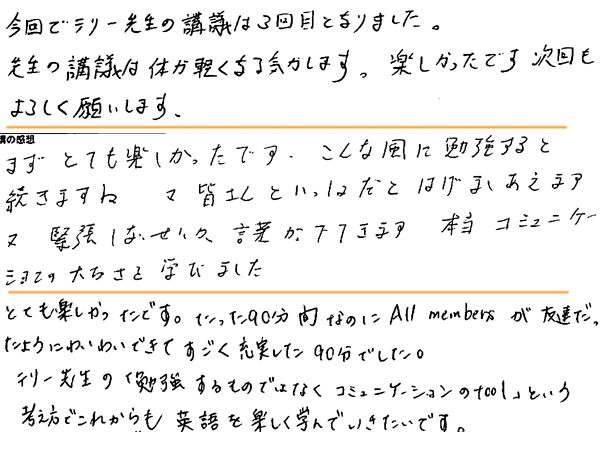 今回でテリー先生の講議は3回目となりました。
先生の講議は体が軽くなる気がします。楽しかったです 次回も
よろしく願いします.
講の感想
まず とても楽しかったです. こんな風に勉強すると
続きますね 又 皆さんといっしょだと はげましあえます
又 緊張しないせいか、言葉がでてきます 本当 コミュニケー
ションの大切さを学びました
とても楽しかったです。たった90分間なのに All members が 友達だっ
たようにわいわいできて すごく充実した90分でした。
テリー先生の「勉強するものではなくコミュニケーションのtool」という
考え方でこれからも 英語を楽しく学んでいきたいです。